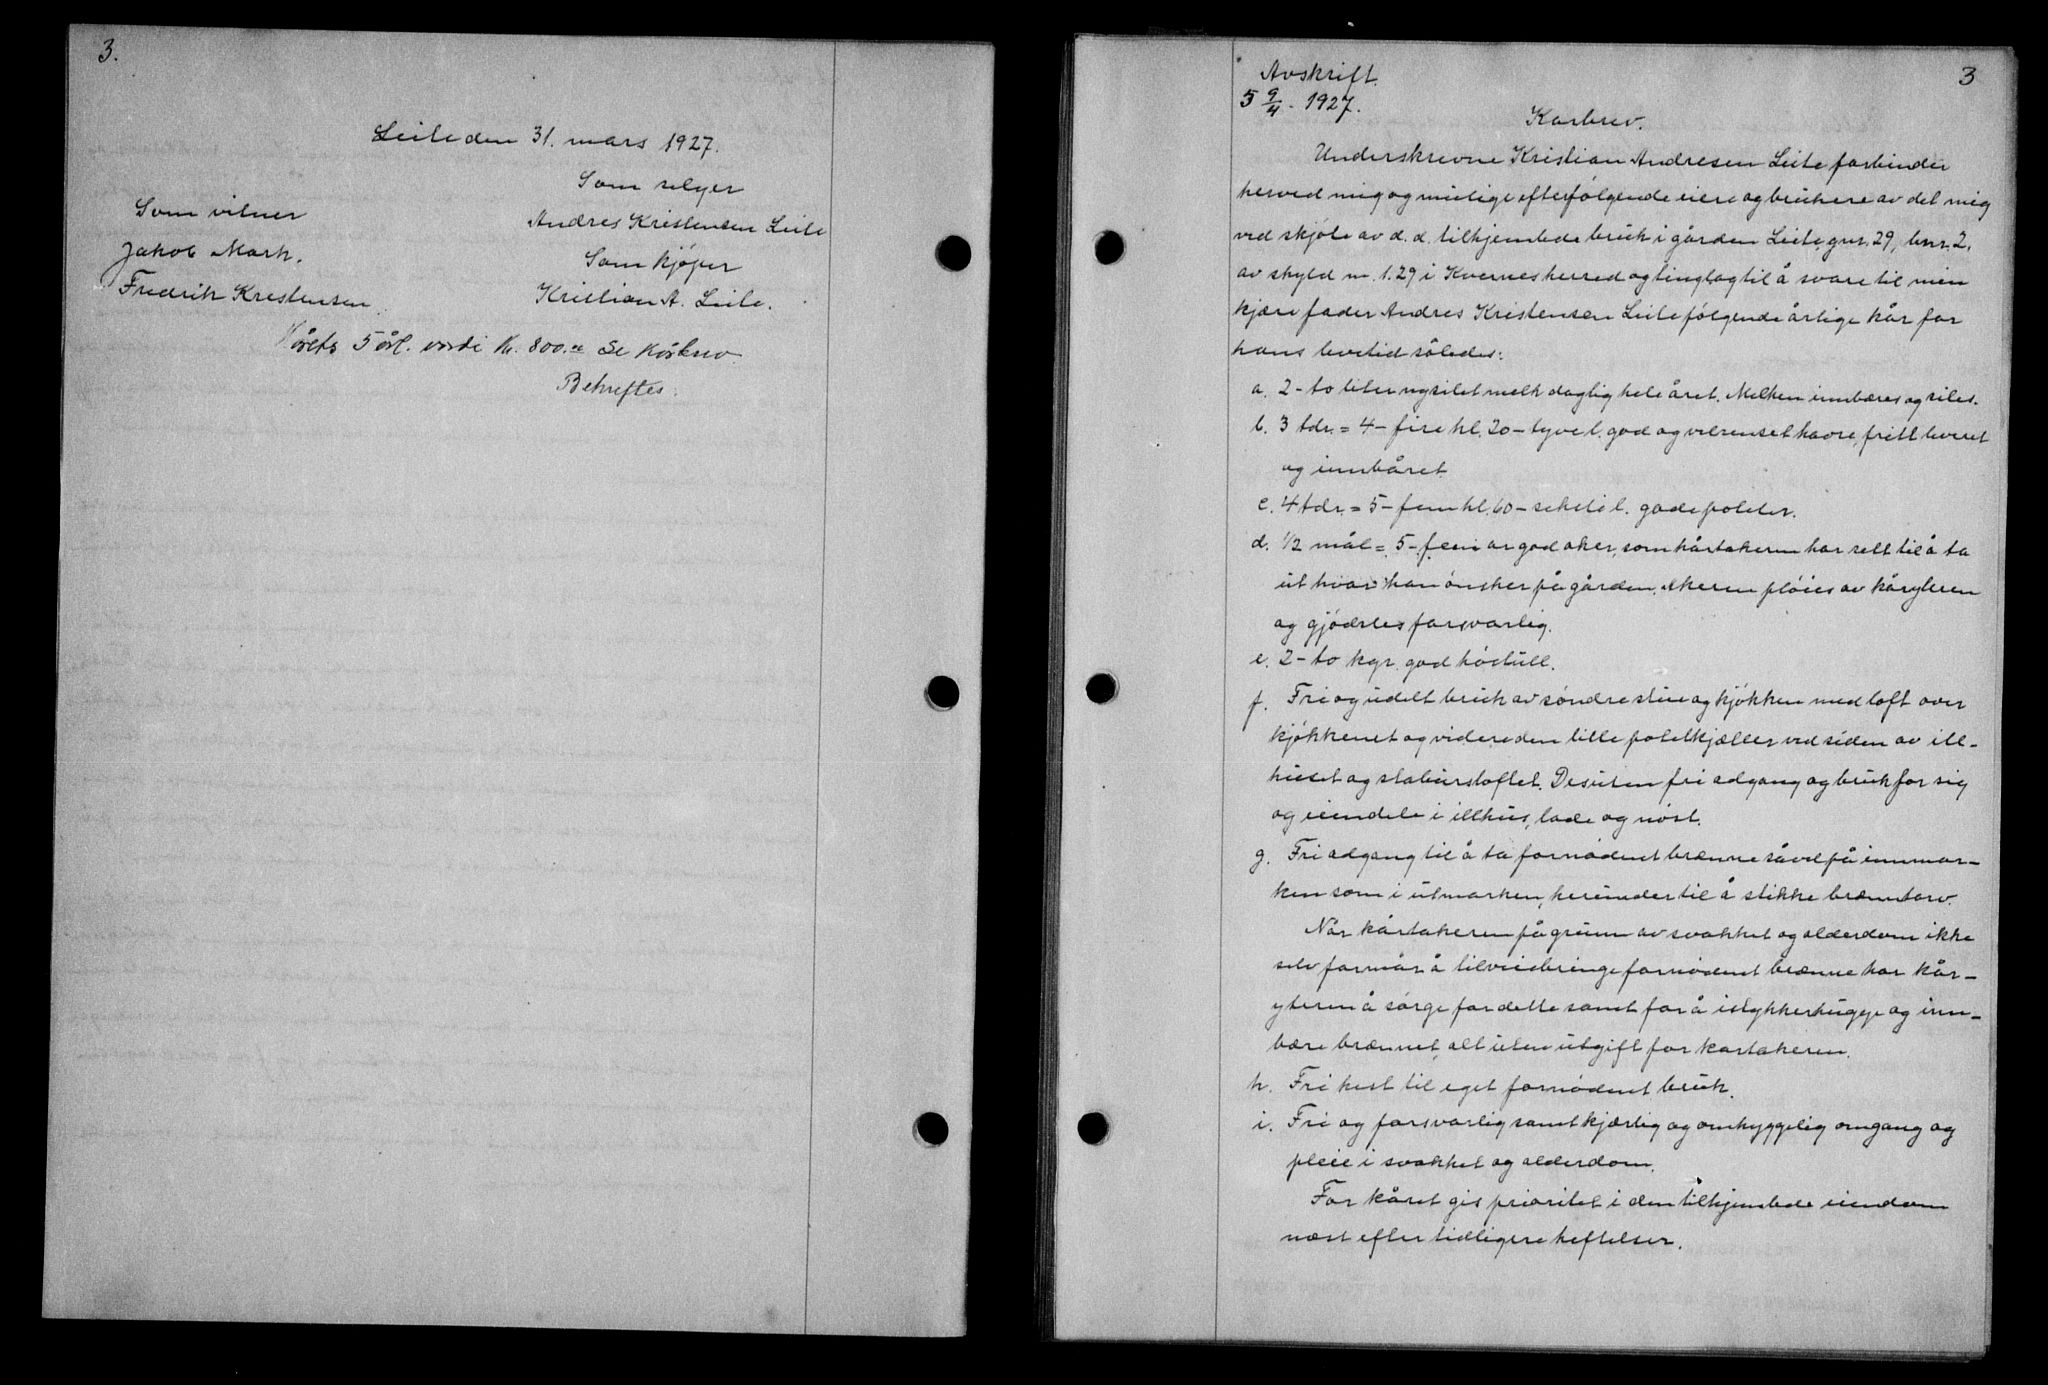 3.
Leite den 31. mars 1927.
Som selger
Som vitner
Andres Kristensen Leite
Jakob Mork.
Som kjøper
Fredrik Krestensen.
Kristian A. Leite.
Kårets 5 årl. verdi kr. 800.00 Se kårbrev.
Bekreftes:
Avskrift.
3
5 9/4 - 1927.
Karbrev.
Underskrevne Kristian Andresen Leite forbinder
herved mig og mulige efterfølgende eiere og brukere av det mig
ved skjøte av d. d. tilhjemlede bruk i gården Leite, gnr. 29, bnr. 2.
av skyld m. 1.29 i Kvernes herred og tinglag til å svare til min
kjære fader Andres Kristensen Leite følgende årlige kår for
hans levetid således:
a. 2 - to liter nysilet melk daglig hele året. Melken innbæres og siles.
b. 3 tdr. = 4 - fire hl. 20 - tyve l. god og velrenset havre, fritt levert
og innbåret.
c. 4 tdr. = 5 - fem hl. 60 - seksti l. gode poteter.
d. 1/2 mål = 5 - fem ar god aker, som kårtakeren har rett til å ta
ut hvor han ønsker på gården. Akeren pløies av kåryteren
og gjødsles forsvarlig.
e. 2 - to kgr. god høstull.
f. Fri og udelt bruk av søndre stue og kjøkken med loft over
kjøkkenet og videre den lille potetkjæller ved siden av ill-
huset og stabursloftet. Desuten fri adgang og bruk for sig
og eiendele i illhus, lade og nøst.
g. Fri adgang til å ta fornødent brænne såvel på innmar-
ken som i utmarken, herunder til å stikke brænntorv.
Når kårtakeren på grunn av svakhet og alderdom ikke
selv formår å tilveiebringe fornødent brænne har kår-
yteren å sørge for dette samt for å istykkerhugge og inn-
bære brænnet, alt uten utgift for kartakeren.
h. Fri hest til eget fornødent bruk.
i. Fri og forsvarlig samt kjærlig og omhyggelig omgang og
pleie i svakhet og alderdom.
For kåret gis prioritet i den tilhjemlede eiendom
næst efter tidligere heftelser.